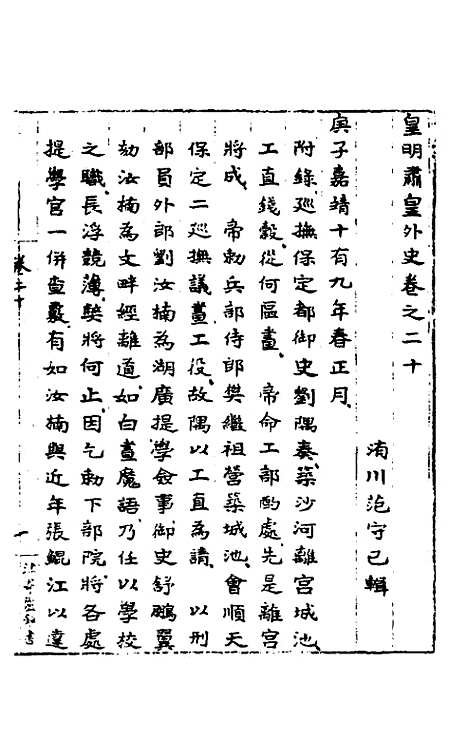 皇明肅皇外史卷之二十
洧川范守己輯
庚子嘉靖十有九年春正月
附錄廵撫保定都御史劉隅奏築沙河離宮城池
工直錢穀從何區畫　帝命工部酌處先是離宮
將成　帝勅兵部侍郎樊繼祖營築城池會順天
保定二廵撫議畫工役故隅以工直為請　以刑
部員外郎劉汝楠為湖廣提學僉事御史舒鵬翼
劾汝楠為文畔經離道如白晝魔語乃任以學校
之職長浮競薄弊將何止因乞勅下部院將各處
提學官一併查覈有如汝楠與近年張鯤江以達
卷二十
一